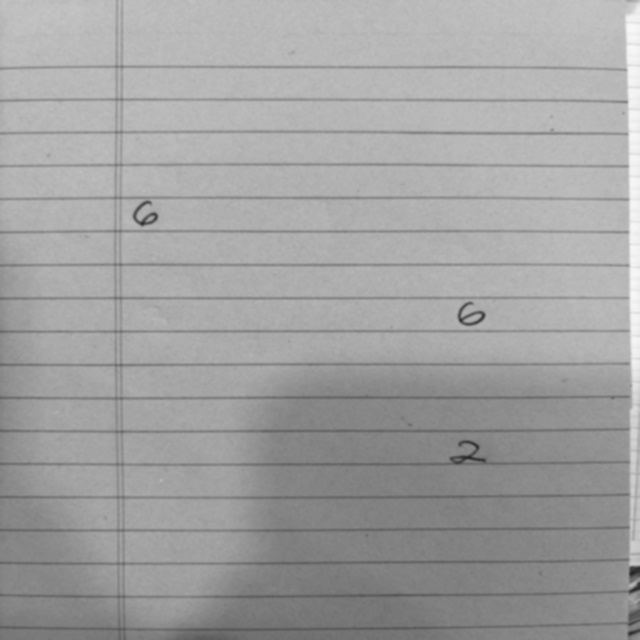 6
6
2